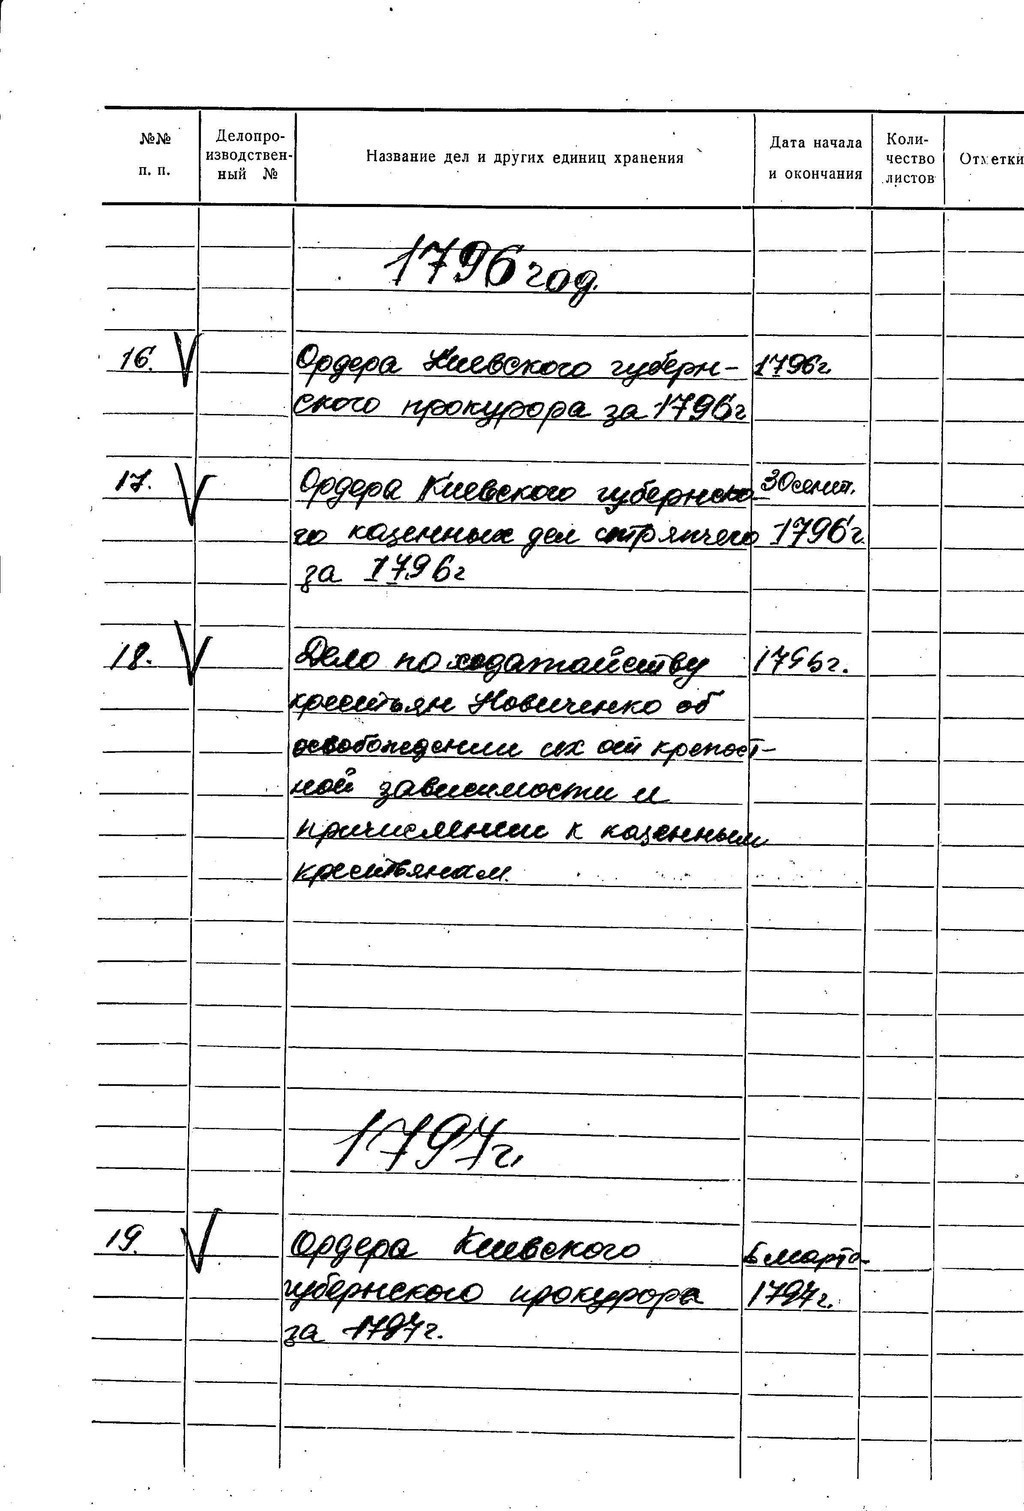 №№ п. п.
Делопро-
изводствен-
ный №
Название дел и других единиц хранения
Дата начала
и окончания
Коли-
чество
листов
Отметки
1796 год.
16. V Ордера Киевского губерн- 1796г.
ского прокурора за 1796г
17. V Ордера Киевского губернско- 30 сент.
го казенных дел стряпчего 1796г.
за 1796г
18. V Дело по ходатайству 1796г.
крестьян Новиченко об
освобождении их от крепост-
ной зависимости и
причислении к казенным
крестьянам.
1797г.
19. V Ордера Киевского 6 марта-
губернского прокурора 1797г.
за 1797г.